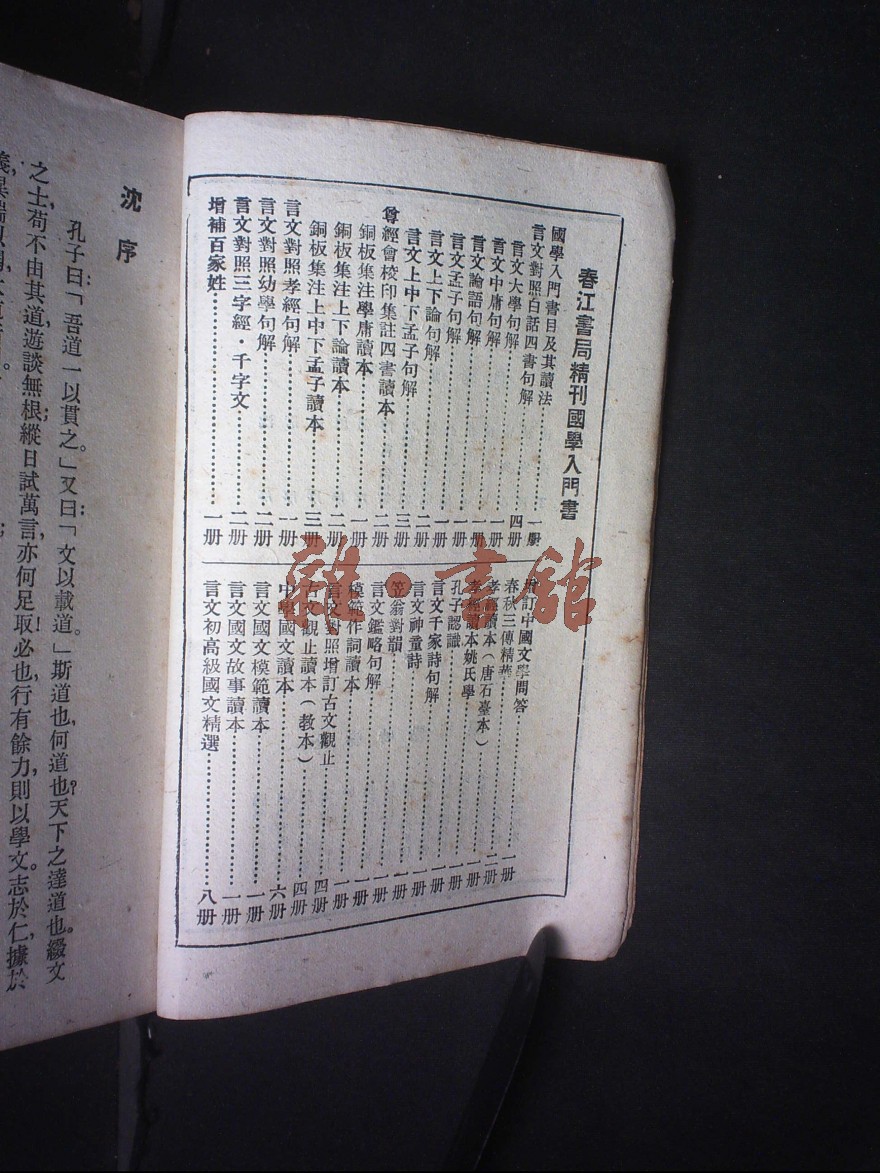 春江書局精刊國學入門書
國學入門書目及其讀法……一册
言文對照白話四書句解……四册
言文大學句解……一册
言文中庸句解……一册
言文論語句解……一册
言文孟子句解……一册
言文上下論句解……二册
言文上中下孟子句解……三册
尊經會校印集註四書讀本
銅板集注學庸讀本……一册
銅板集注上下論讀本……二册
銅板集注上中下孟子讀本……三册
言文對照孝經句解……一册
言文對照幼學句解……二册
言文對照三字經・千字文……二册
增補百家姓……一册
增訂中國文學問答……一册
春秋三傳精華……二册
孝經讀本(唐石臺本)……一册
孝經讀本姚氏學……一册
孔子認識……一册
言文千家詩句解……一册
言文神童詩……一册
笠翁對韻……一册
言文鑑略句解……一册
模範作詞讀本……一册
言文對照增訂古文觀止……四册
古文觀止讀本(教本)……四册
中學國文讀本……六册
言文國文模範讀本……一册
言文國文故事讀本……一册
言文初高級國文精選……八册
雜・書館
沈序
孔子曰:「吾道一以貫之。」又曰:「文以載道。」斯道也,何道也?天下之達道也。綴文
之士,苟不由其道,遊談無根,縱日試萬言,亦何足取!必也,行有餘力,則以學文。志於仁,據於